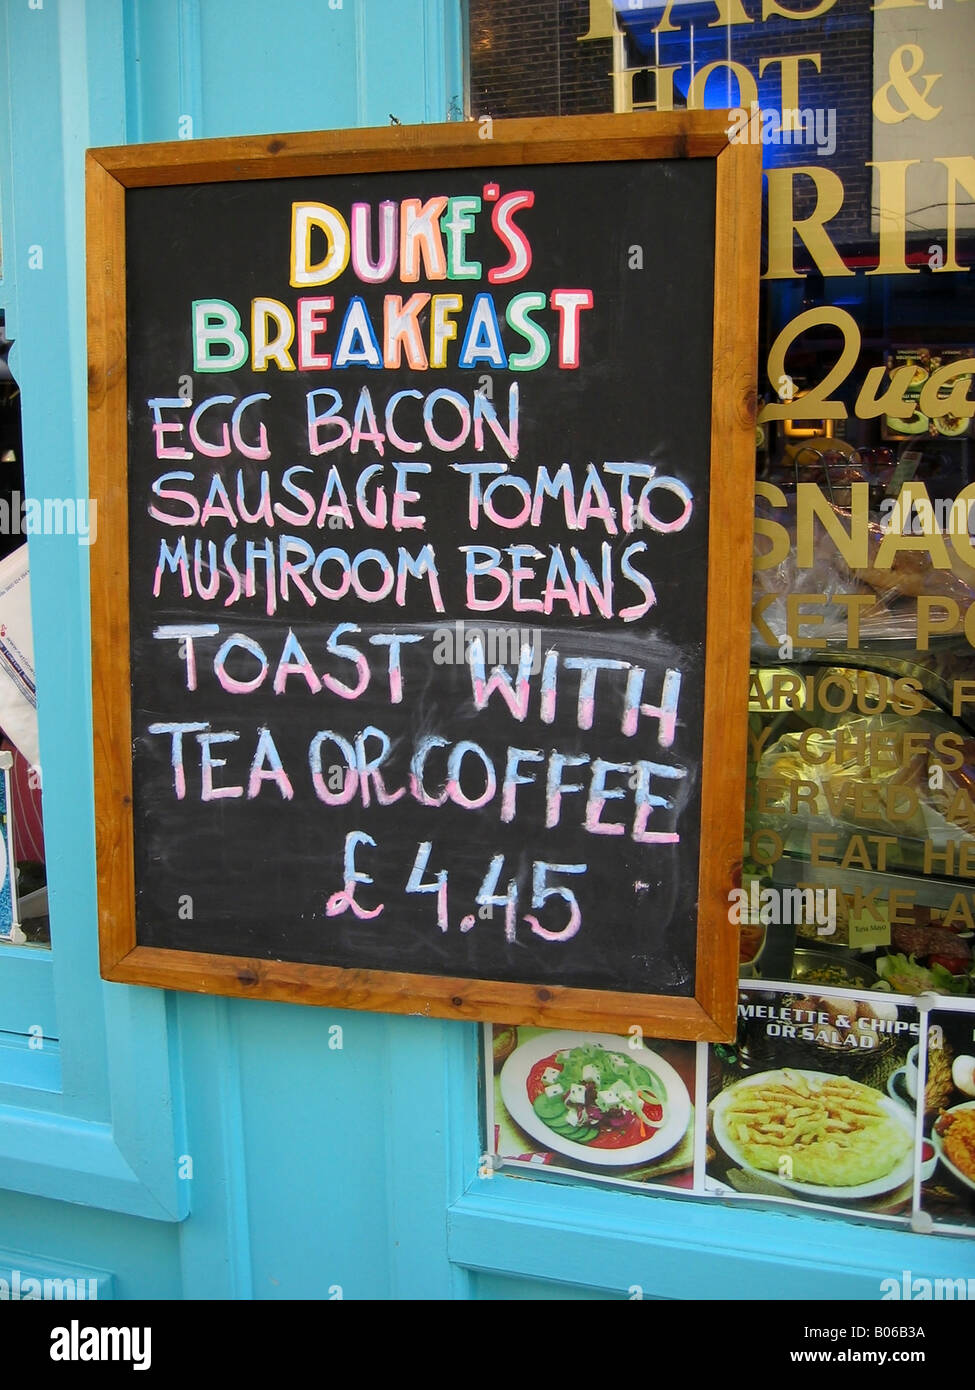 DUKE'S
BREAKFAST
EGG BACON
SAUSAGE TOMATO
MUSHROOM BEANS
TOAST WITH
TEA OR COFFEE
£4.45
HOT &
RIN
Qua
SNAC
KET PO
ARIOUS F
Y CHEFS
ERVED A
O EAT HE
TAKE A
Tuna Mayo
MELETTE & CHIPS
OR SALAD
alamy
Image ID: B06B3A
www.alamy.com